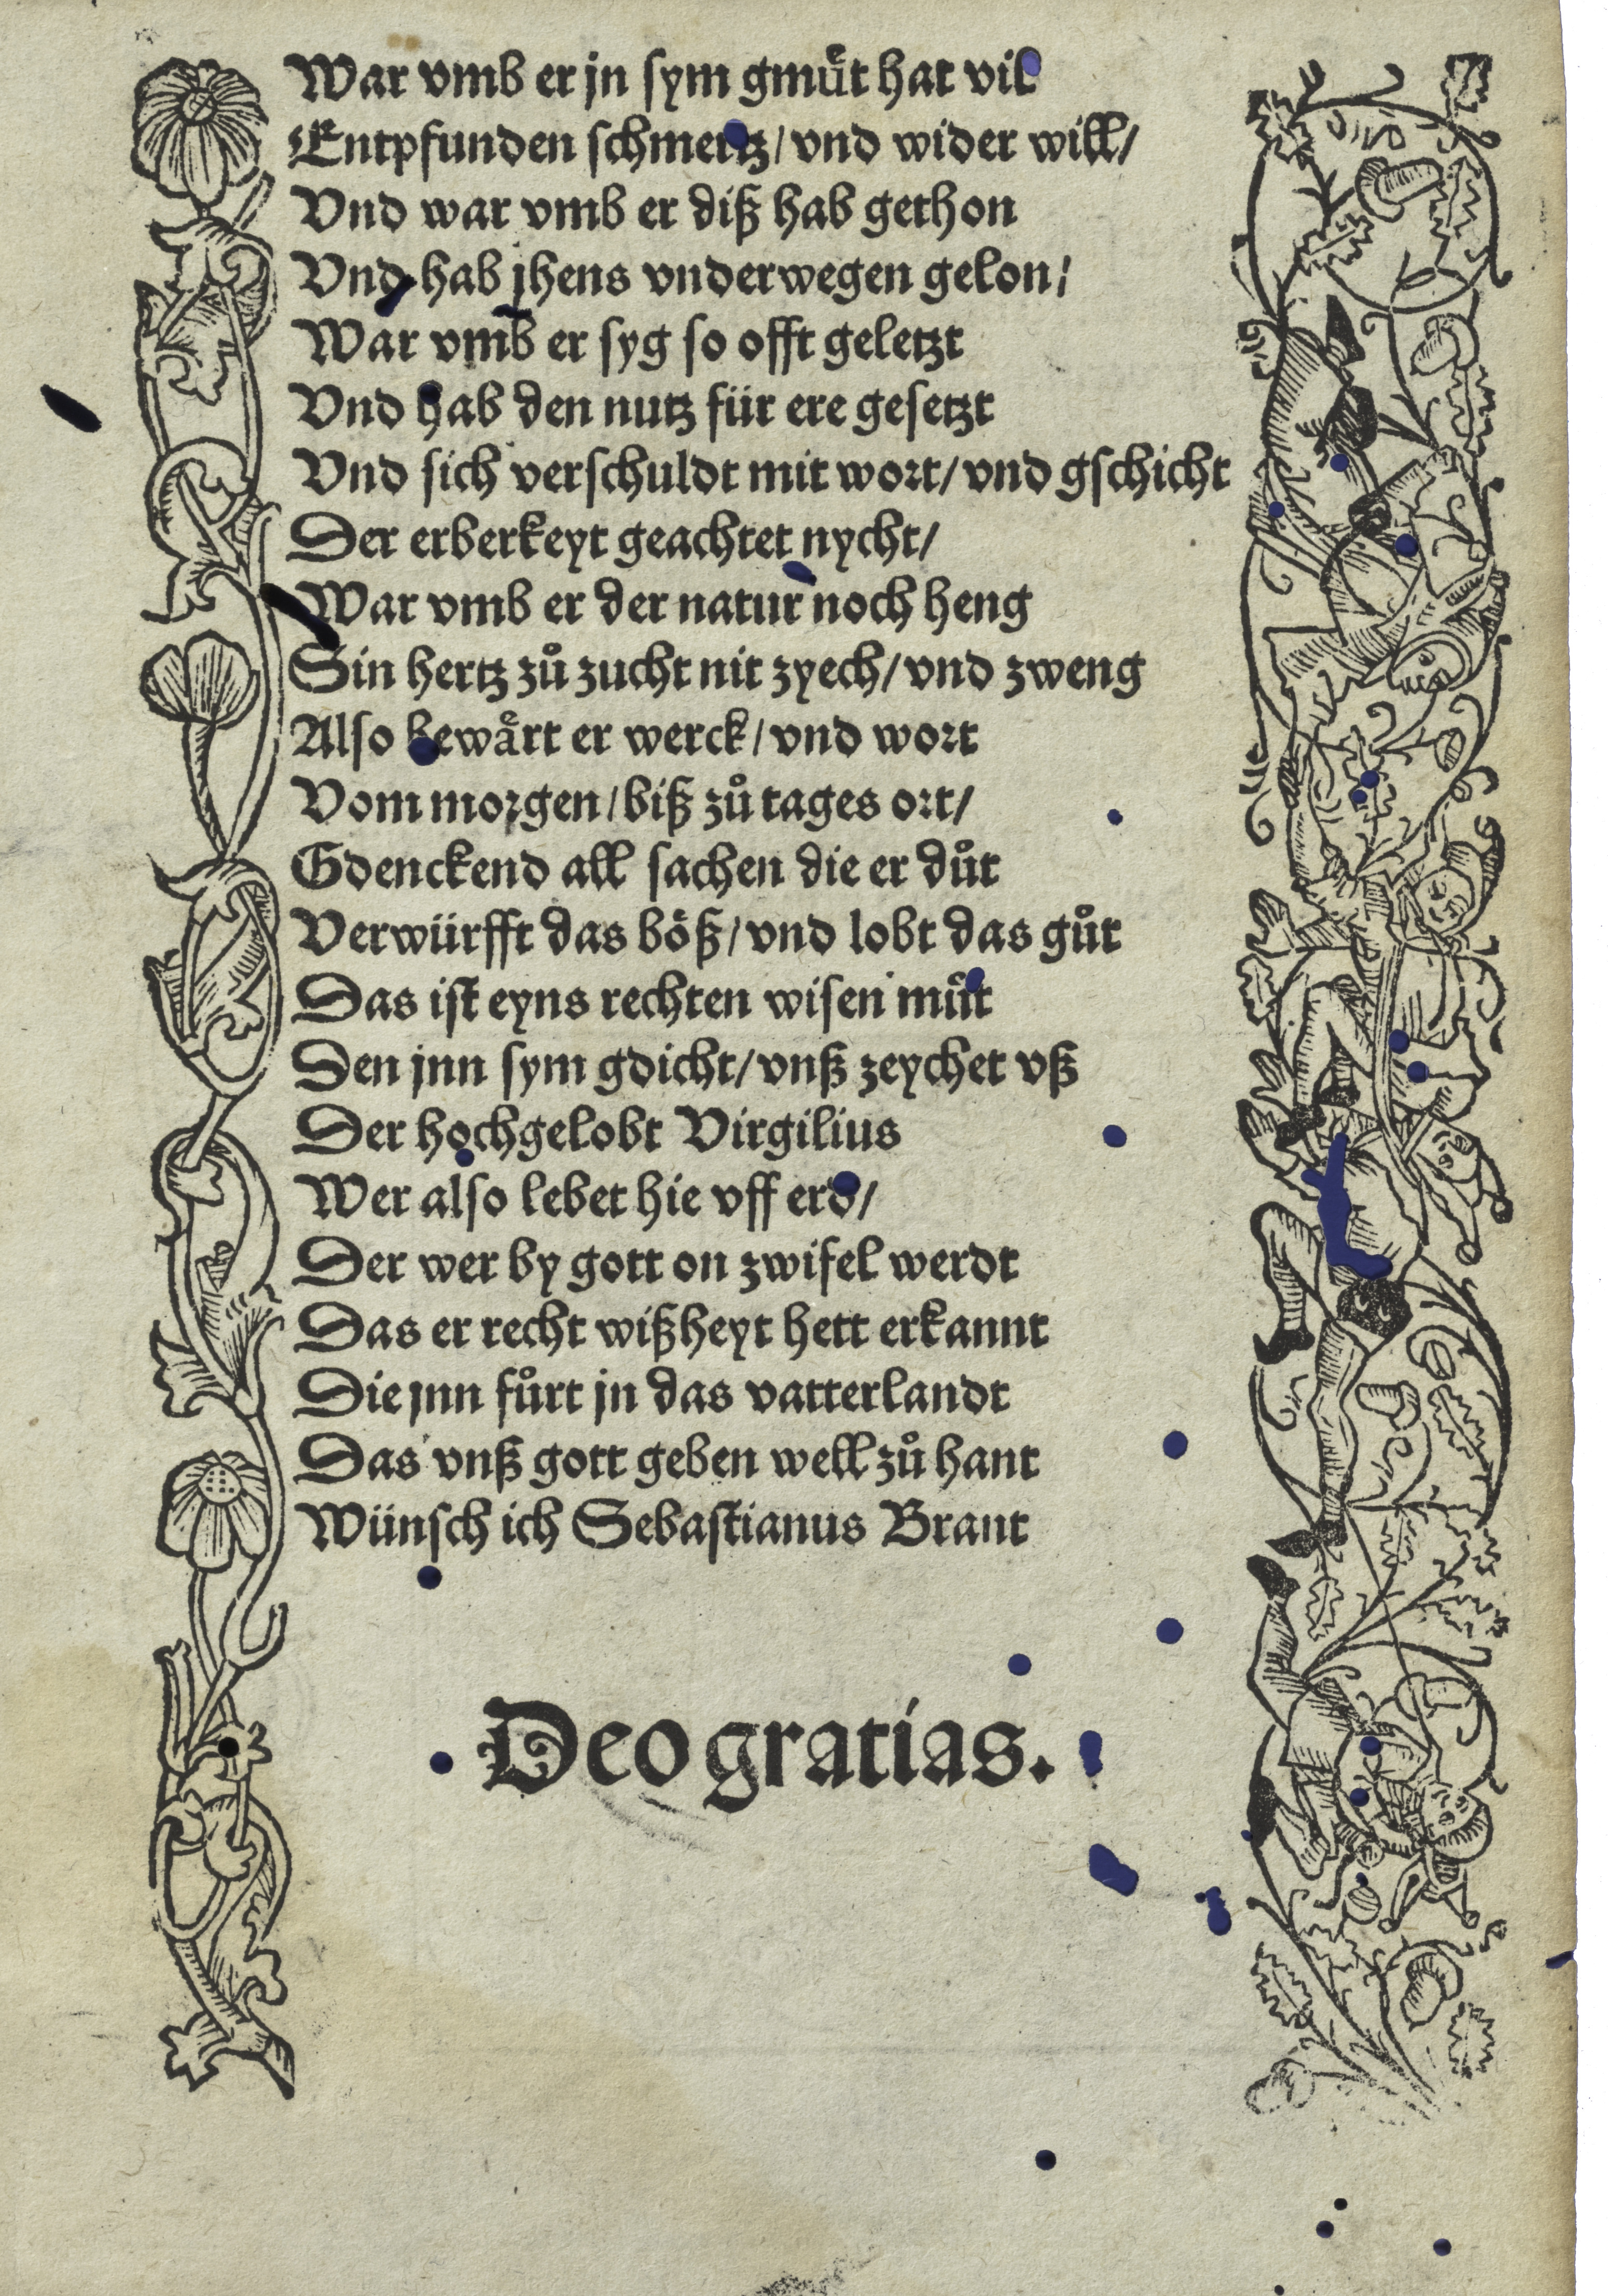 War vmb er jn sym gmuͤt hat vil
Entpfunden schmertz / vnd wider will /
Vnd war vmb er diß hab gethon
Vnd hab jhens vnderwegen gelon /
War vmb er syg so offt geletzt
Vnd hab den nutz für ere gesetzt
Vnd sich verschuldt mit wort / vnd gschicht
Der erberkeyt geachtet nycht /
War vmb er der natur noch heng
Sin hertz zuͦ zucht nit zyech / vnd zweng
Also bewaͤrt er werck / vnd wort
Vom morgen / biß zuͦ tages ort /
Gdenckend all sachen die er duͦt
Verwürfft das boͤß / vnd lobt das guͦt
Das ist eyns rechten wisen muͦt
Den jnn sym gdicht / vnß zeychet vß
Der hochgelobt Virgilius
Wer also lebet hie vff erd /
Der wer by gott on zwifel werdt
Das er recht wißheyt hett erkannt
Die jnn fuͦrt jn das vatterlandt
Das vnß gott geben well zuͦ hant
Wünsch ich Sebastianus Brant
Deo gratias.